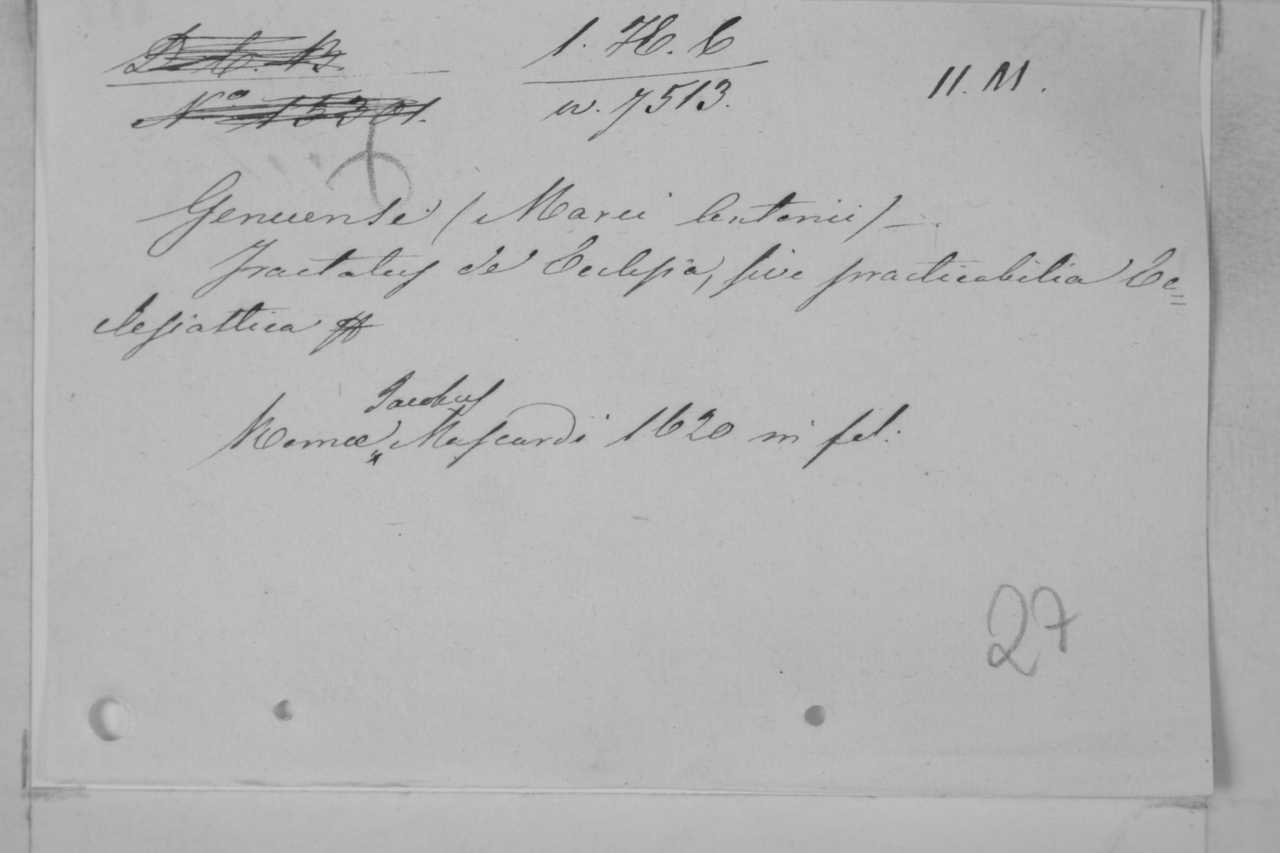 D. C. B. 1. H. C 11. M.
Nº 15301. w. 7513.
Genuense (Marci Antonii) —
Tractatus de Eclesia, sive practicabilia Ec=
clesiastica ff
Jacobus
Romæ, Mascardi 1620 in fol.
27